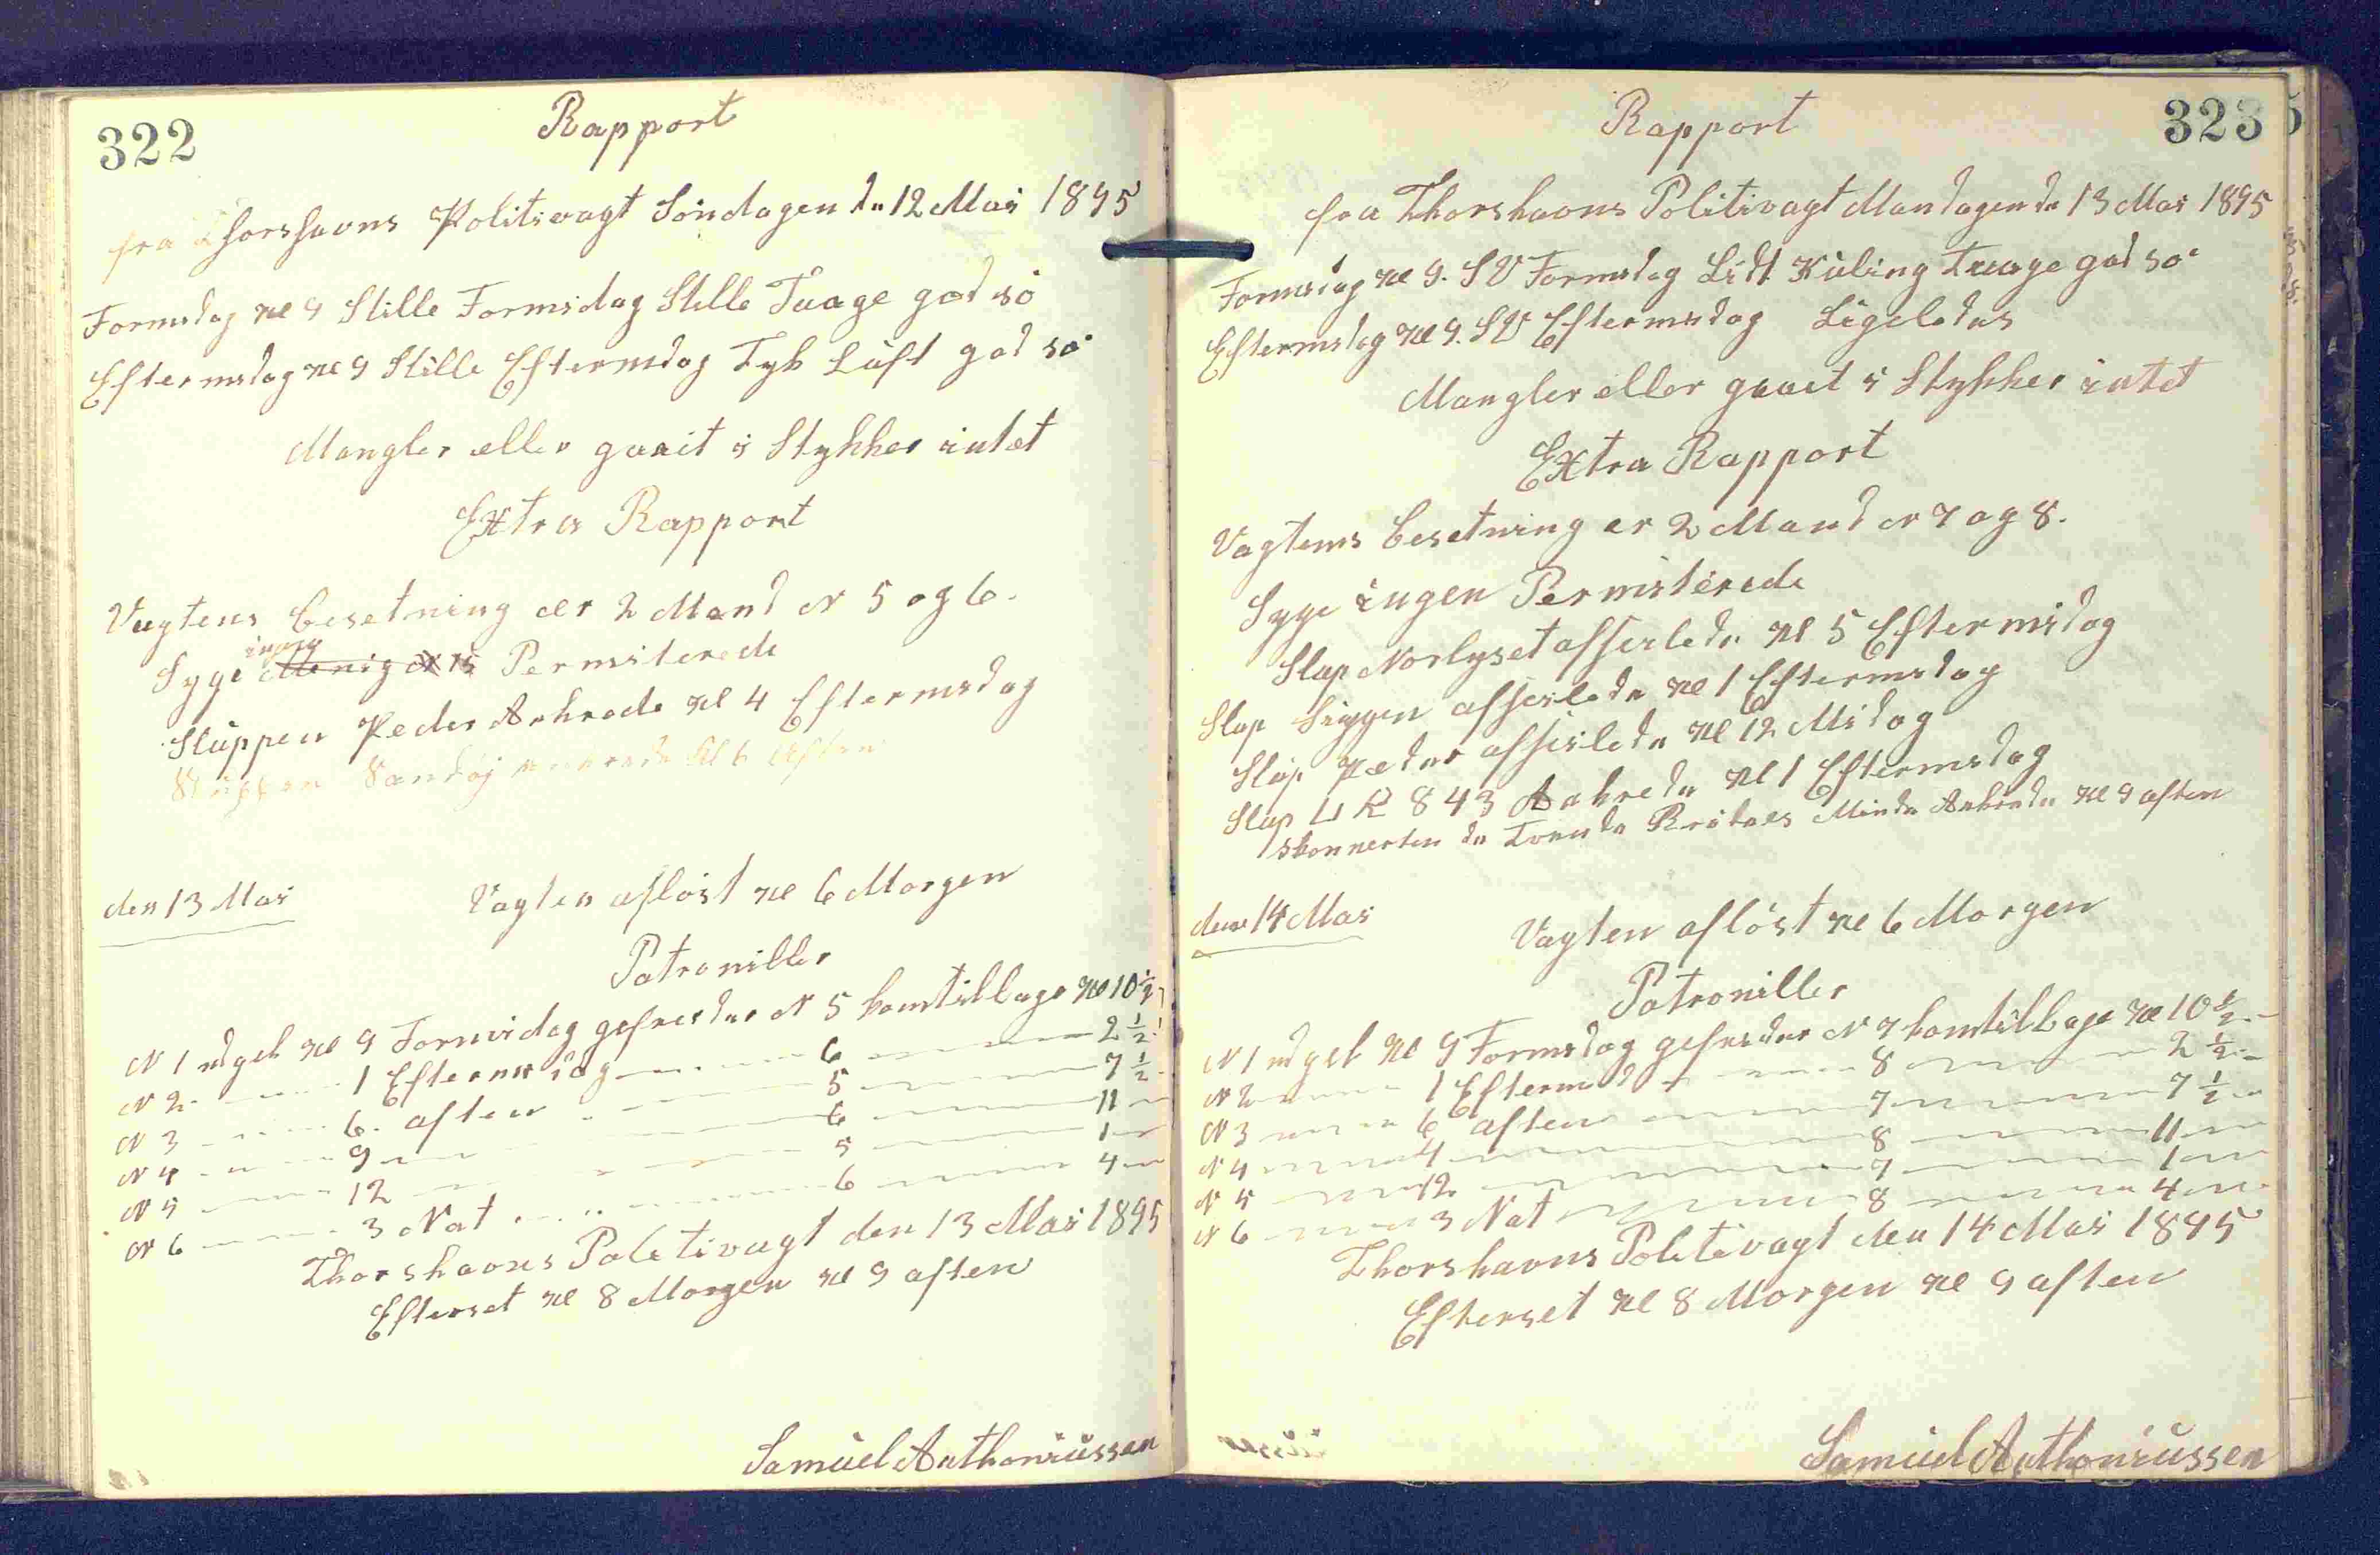 322
Rapport
fra Thorshavns Politivagt Söndagen dn 12 Mai 1895
Formidag Kl 9 Stille Formidag Stille Taage god sö
Eftermidag Kl 9 Stille Eftermidag Tyk Luft god sö
Mangler eller gaait i Stykker intet
Extra Rapport
Vagtens Besetning er 2 Mand N 5 og 6.
ingen
Syge Menig N 15 Permiterede
Sluppen Peder Ankrede Kl 4 Eftermidag
Sluppen Sandöj ankrede Kl 6 Aften
den 13 Mai
Vagten aflöst Kl 6 Morgen
Patroniller
N 1 udgek Kl 9 Formidag gefreider N 5 kom tilbage Kl 10 1/2
N 2 1 Eftermidag 6 2 1/2
N 3 6 aften 5 7 1/2
N 4 9 6 11
N 5 12 5 1
N 6 3 Nat 6 4
Thorshavns Politivagt den 13 Mai 1895
Efterset Kl 8 Morgen Kl 9 aften
Samuel Anthoniussen
323
Rapport
fra Thorshavns Politivagt Mandagen dn 13 Mai 1895
Formidag Kl 9. SV Formidag Lidt Kuling Taage god sö
Eftermidag Kl 9. SV Eftermidag Ligeledes
Mangler eller gaait i Stykker intet
Extra Rapport
Vagtens Besetning er 2 Mand N 7 og 8.
Syge ingen Permiterede
Slup Norlyset afseiledn Kl 5 Eftermidag
Slup Siggen afseiledn Kl 1 Eftermidag
Slup Peder afseiledn Kl 12 Midag
Slup LK 843 Ankredn Kl 1 Eftermidag
Skonnerten Brödres Minde Ankredn Kl 9 aften
den 14 Mai
Vagten aflöst Kl 6 Morgen
Patroniller
N 1 udgek Kl 9 Formidag gefreider N 7 kom tilbage Kl 10 1/2
N 2 1 Eftermid 8 2 1/2
N 3 6 aften 7 7 1/2
N 4 8 11
N 5 12 7 1
N 6 3 Nat 8 4
Thorshavns Politivagt den 14 Mai 1895
Efterset Kl 8 Morgen Kl 9 aften
Samuel Anthoniussen